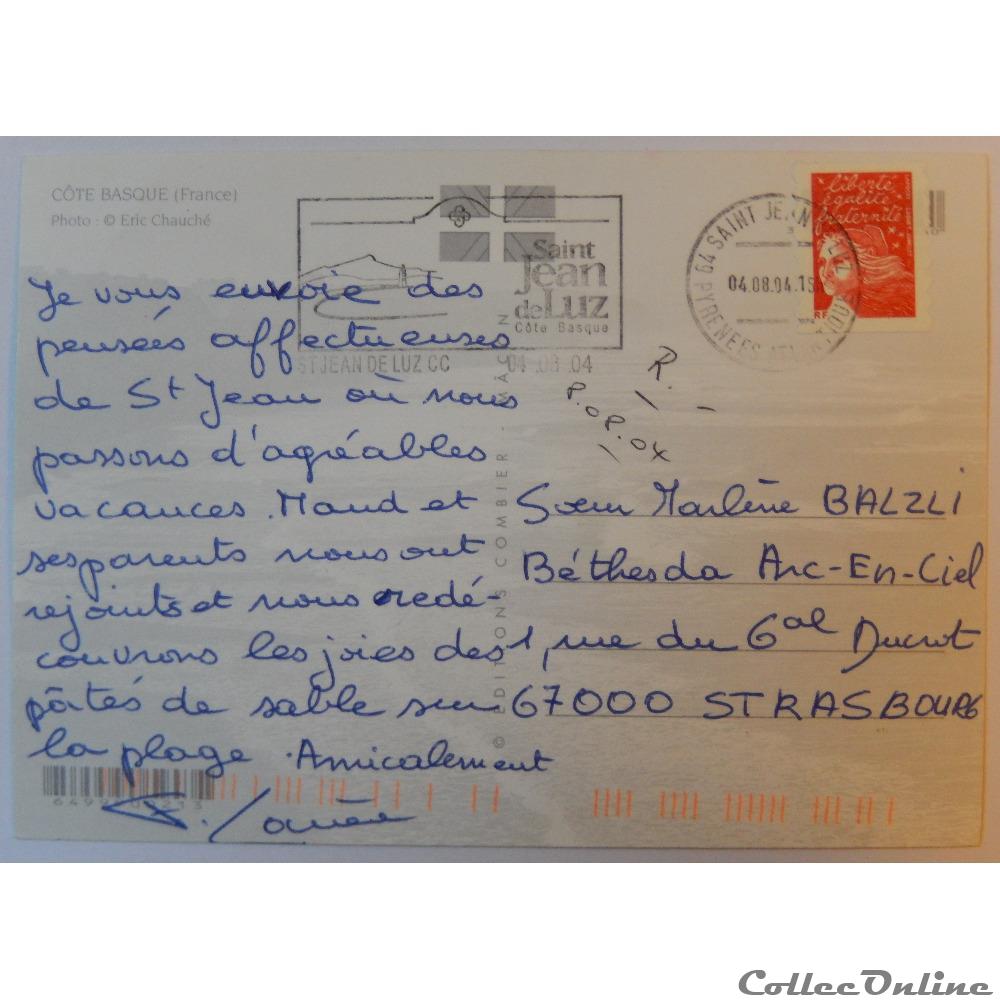 CÔTE BASQUE (France)
Photo : © Eric Chauché
Saint
Jean
de Luz
Côte Basque
ST JEAN DE LUZ CC 04.08.04
64 SAINT JEAN DE LUZ
04.08.04.15
PYRENEES ATLANTIQUES
liberté
égalité
fraternité
RF
R.
8.08.04
Je vous envoie des
pensées affectueuses
de St Jean où nous
passons d'agréables
vacances. Maud et
ses parents nous ont
rejoints et nous redé-
couvrons les joies des
pâtés de sable sur
la plage. Amicalement
© EDITIONS COMBIER - MÂCON
Soeur Marlène BALZLI
Béthesda Arc-En-Ciel
1, rue du Gal Ducrot
67000 STRASBOURG
CollecOnline